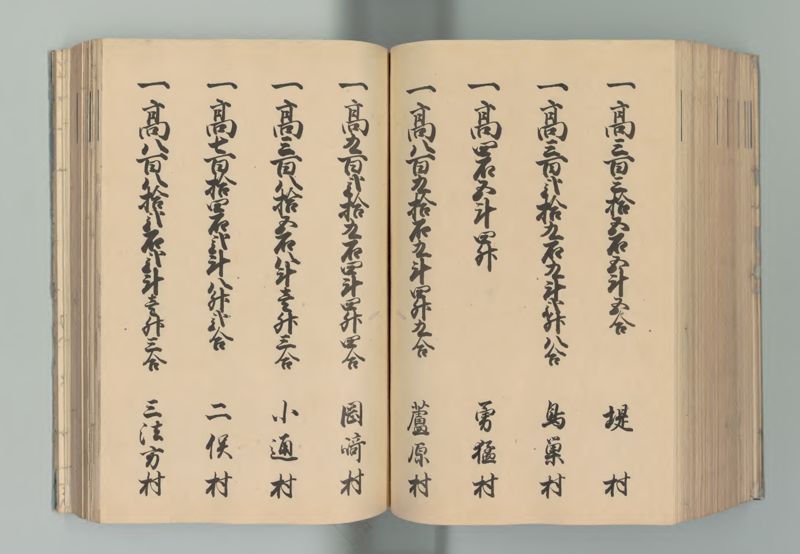 一高三百三拾五石五斗五合 堤村
一高三百弐拾九石九斗弐升八合 鳥巣村
一高四石五斗四升 勇猛村
一高八百九拾石九斗四升九合 蘆原村
一高九百弐拾九石四斗四升四合 岡崎村
一高三百八拾五石八斗壱升三合 小通村
一高七百拾四石弐斗八升弐合 二俣村
一高八百八拾弐石弐斗壱升三合 三法方村